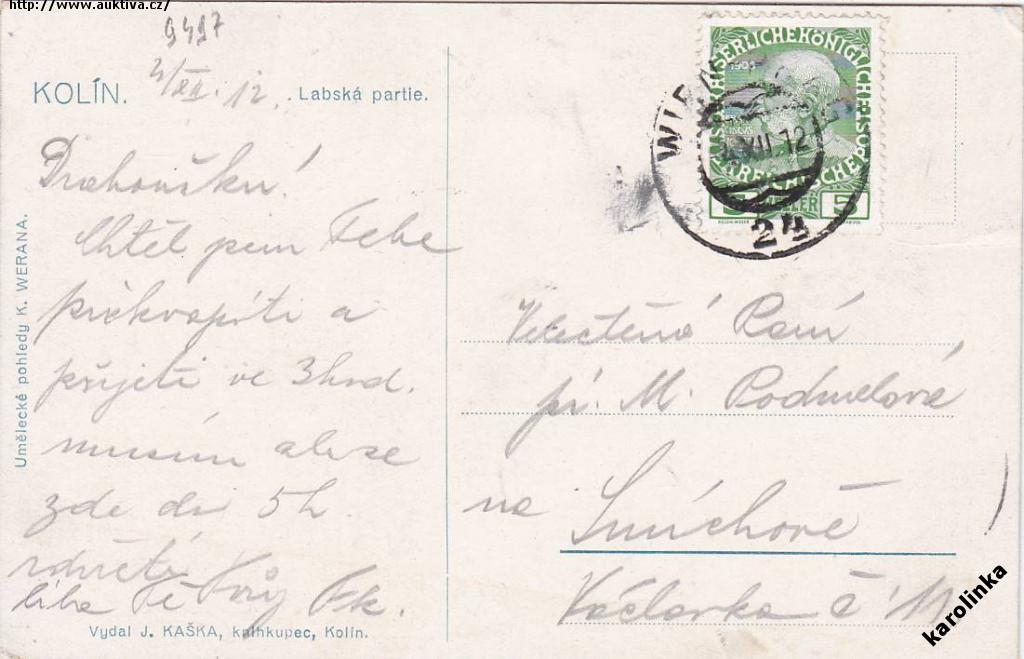 http://www.auktiva.cz/
9497
2/XII. 12.
KOLÍN.
Labská partie.
Drahoušku!
Chtěl jsem Tebe
překvapiti a
přijeti ve 3 hod.
musím ale se
zde do 5 h
zdržeti
líbá Tě Tvůj Fk.
Umělecké pohledy K. WERANA.
Vydal J. KAŠKA, knihkupec, Kolín.
SERLICHE KÖNIGLICHE
1908
5 HELLER 5
XII.12
24
Velectěná Paní
pí. M. Podmelová
na Smíchově
Václavka č 11
karolinka